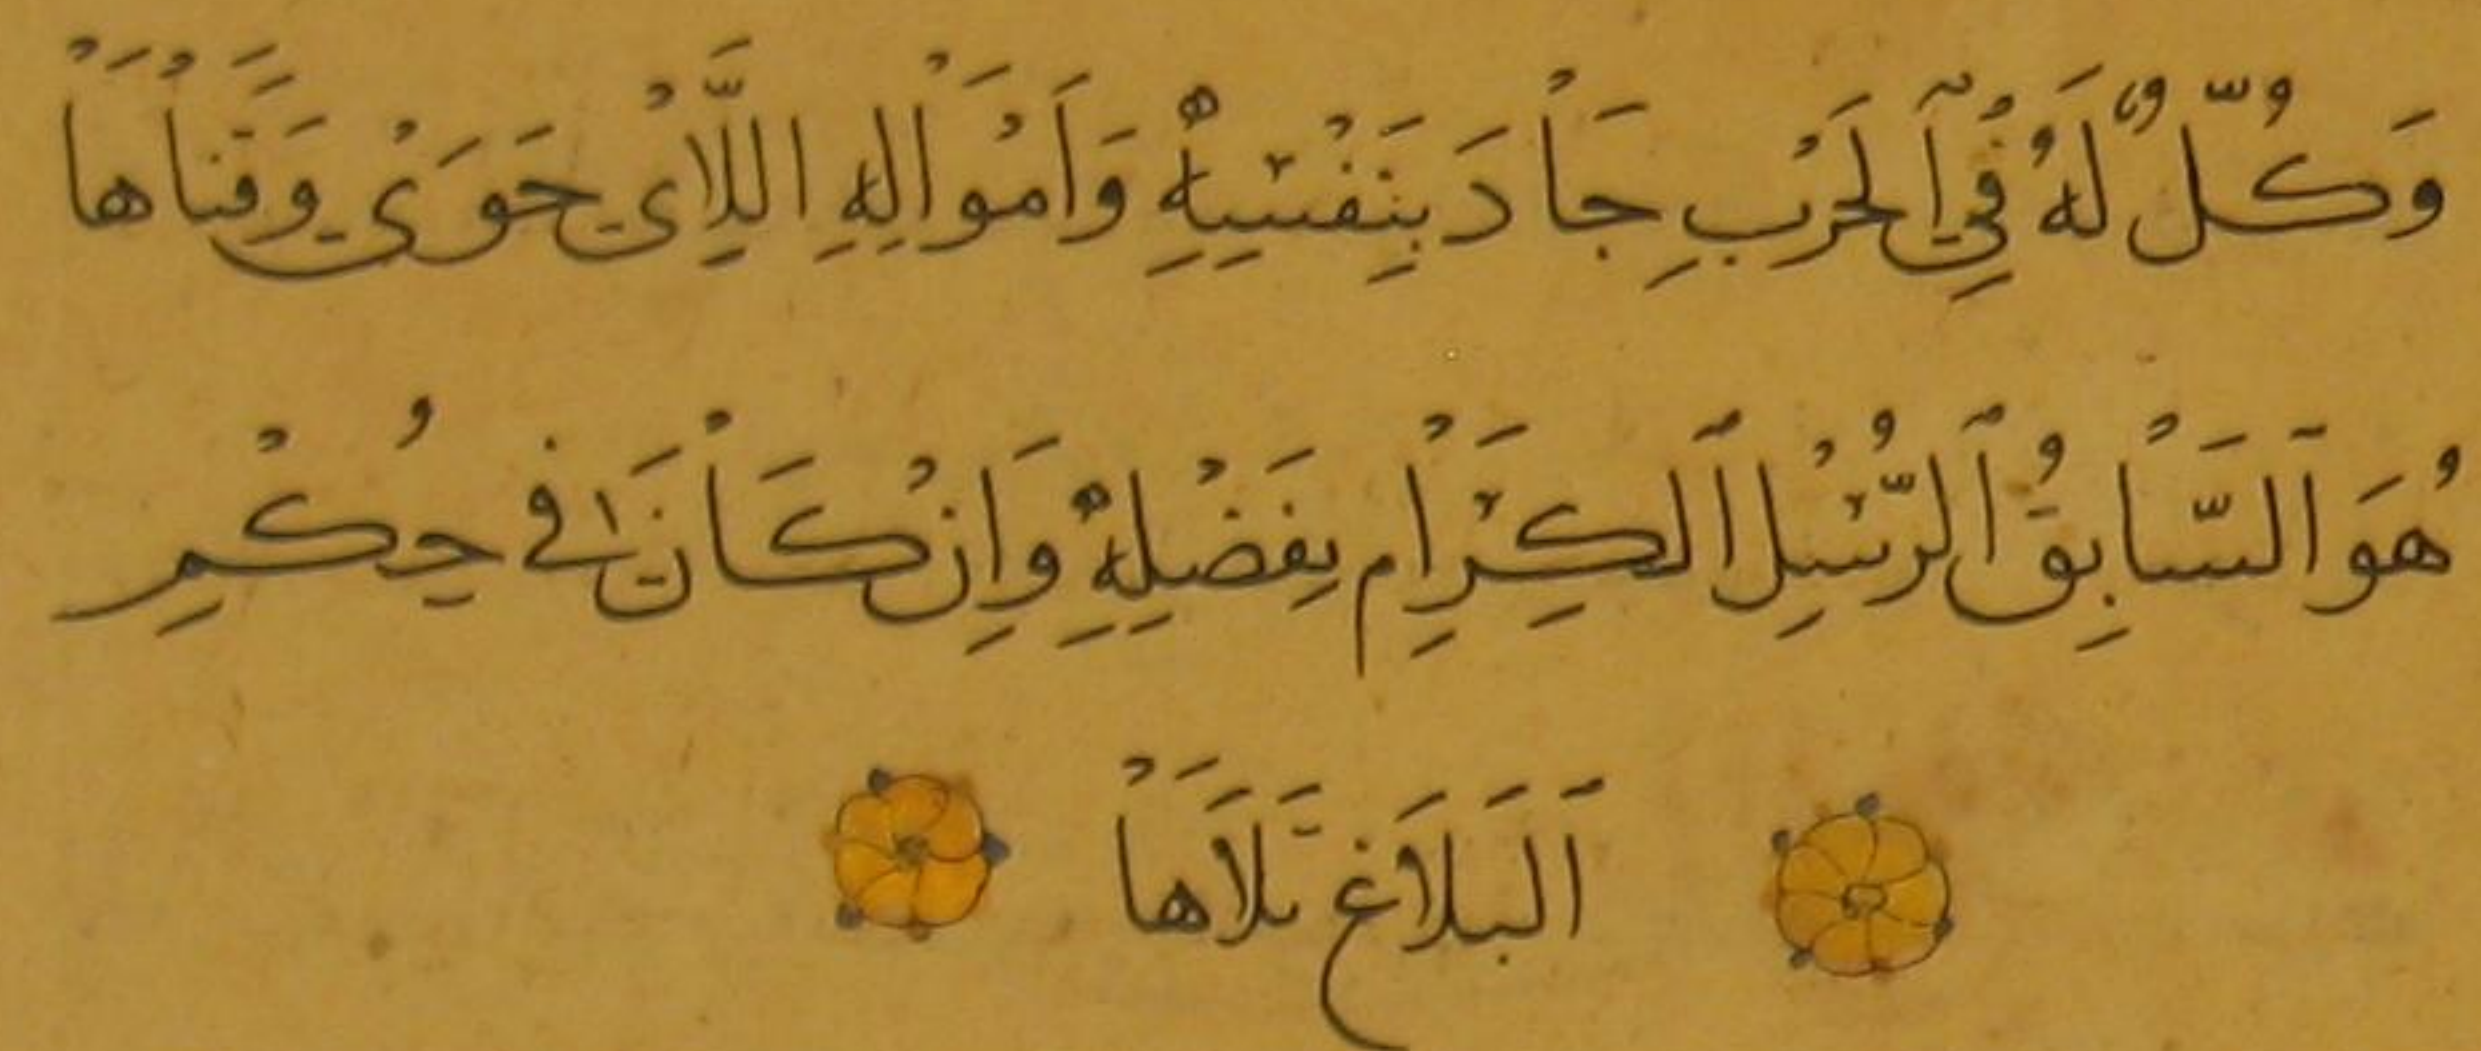 وَكُلٌّ لَهُ فِي ٱلحَرْبِ جَاْدَ بِنَفْسِهِ وَاَمْوَاْلِهِ اللَّاْئِ حَوَىْ وَقَنَاْهَاْ
هُوَ ٱلسَّاْبِقُ ٱلرُّسْلِ ٱلكِرَاْمِ بِفَضْلِهِ وَاِنْ كَاْنَ فِي حُكْمِ
ٱلبَلَاَغِ تَلَاَهَاْ